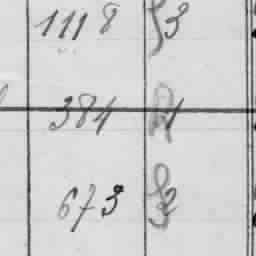 1118 3
384 1
673 2